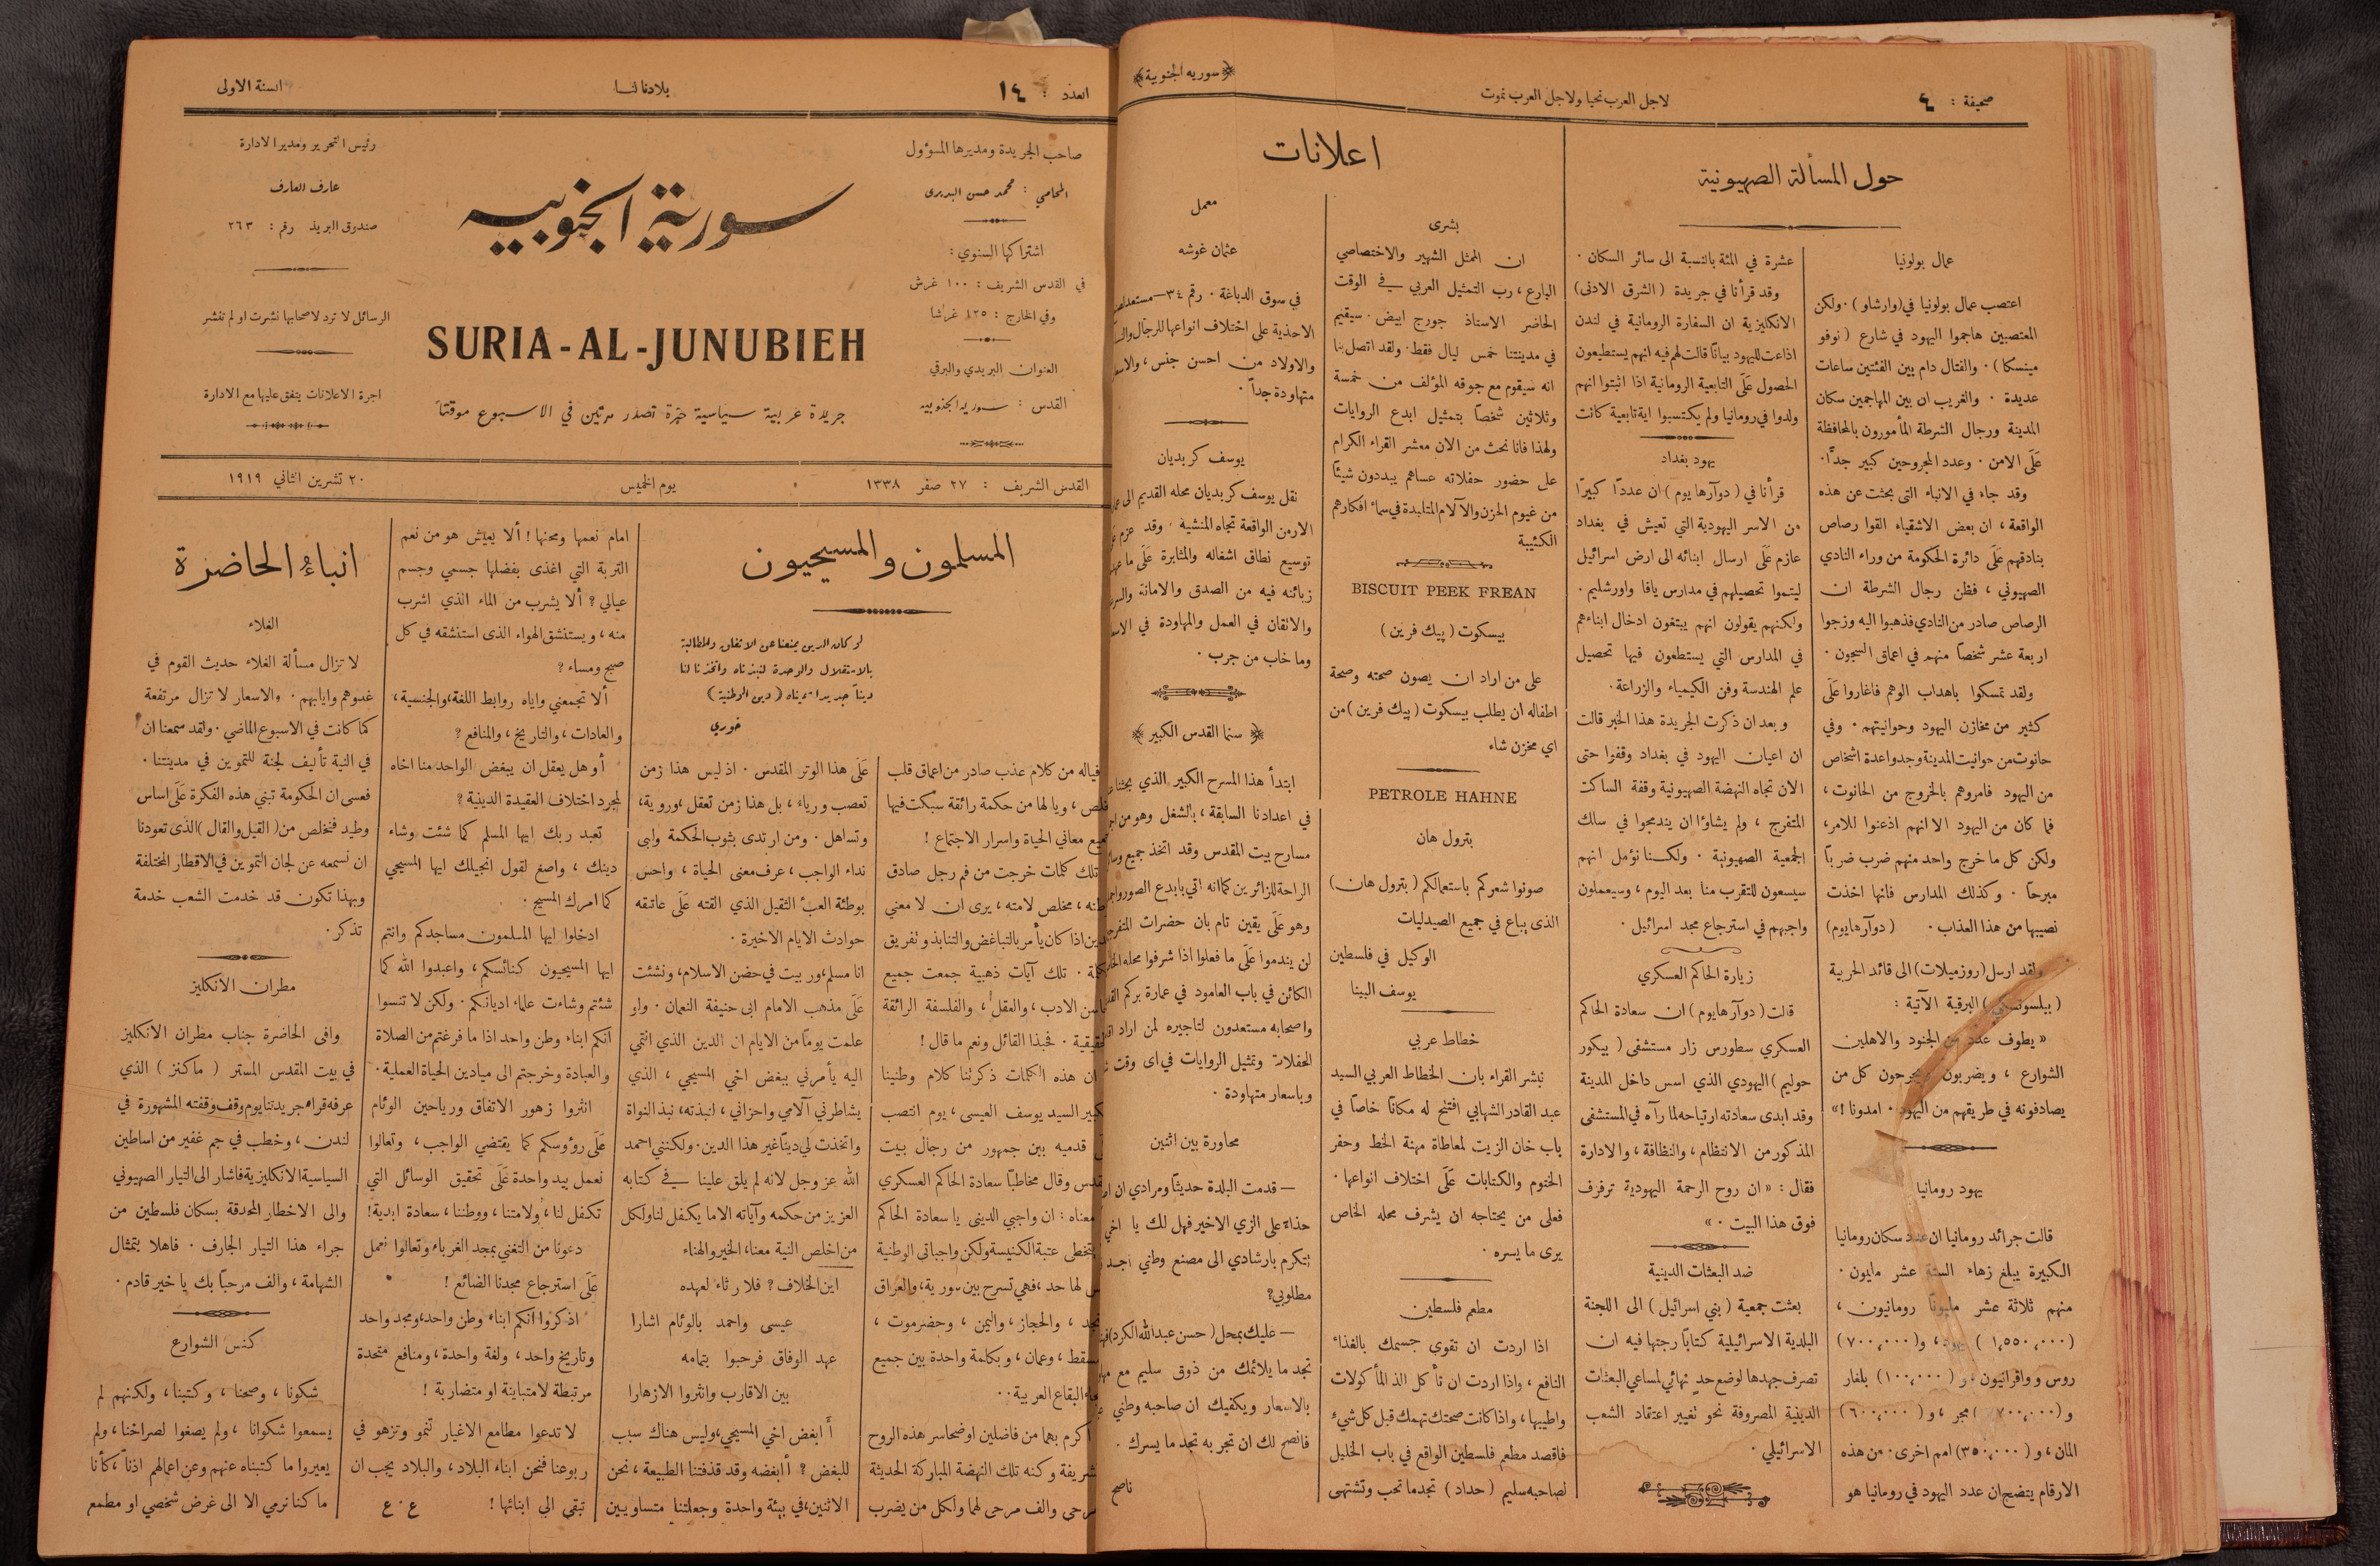 صحيفة : ٤
لاجل العرب نحيا ولاجل العرب نموت
﴿ سوريه الجنوبية ﴾
حول المسألة الصهيونية
عمال بولونيا
اعتصب عمال بولونيا في (وارشاو) . ولكن
المعتصبين هاجموا اليهود في شارع ( نوفو
مينسكا ) . والقتال دام بين الفئتين ساعات
عديدة . والغريب ان بين المهاجمين سكان
المدينة ورجال الشرطة المأمورون بالمحافظة
عَلَى الامن . وعدد المجروحين كبير جدًّا .
وقد جاء في الانباء التى بحثت عن هذه
الواقعة ، ان بعض الاشقياء القوا رصاص
بنادقهم عَلَى دائرة الحكومة من وراء النادي
الصهيوني ، فظن رجال الشرطة ان
الرصاص صادر من النادي فذهبوا اليه وزجوا
اربعة عشر شخصاً منهم في اعماق السجون .
ولقد تمسكوا باهداب الوهم فاغاروا عَلَى
كثير من مخازن اليهود وحوانيتهم . وفي
حانوت من حوانيت المدينة وجدوا عدة اشخاص
من اليهود فامروهم بالخروج من الحانوت ،
فما كان من اليهود الا انهم اذعنوا للامر ،
ولكن كل ما خرج واحد منهم ضرب ضرباً
مبرحاً . وكذلك المدارس فانها اخذت
نصيبها من هذا العذاب . (دوآرهايوم)
ولقد ارسل (روزميلات) الى قائد الحربية
البرقية الآتية :
« يطوف عدد من الجنود والاهلين
الشوارع ، ويضربون ويجرحون كل من
يصادفونه في طريقهم من اليهود . امدونا ! »
يهود رومانيا
قالت جرائد رومانيا ان عدد سكان رومانيا
الكبيرة يبلغ زهاء الستة عشر مليون .
منهم ثلاثة عشر مليوناً رومانيون ،
( ١،٥٥٠،٠٠٠ ) يهود ، و(٧٠٠،٠٠٠)
روس وواقرانيون ، و ( ١٠٠،٠٠٠ ) بلغار
مجر ، و ( ٦٠٠،٠٠٠ )
المان ، و ( ٣٥٠،٠٠٠ ) امم اخرى . من هذه
الارقام يتضح ان عدد اليهود في رومانيا هو
عشرة في المئة بالنسبة الى سائر السكان .
وقد قرأنا في جريدة ( الشرق الادنى )
الانكليزية ان السفارة الرومانية في لندن
اذاعت لليهود بيانًا قالت لهم فيه انهم يستطيعون
الحصول عَلَى التابعية الرومانية اذا اثبتوا انهم
ولدوا في رومانيا ولم يكتسبوا اية تابعية كانت
يهود بغداد
قرأنا في ( دوآرهايوم ) ان عددًا كبيرًا
من الاسر اليهودية التي تعيش في بغداد
عازم عَلَى ارسال ابنائه الى ارض اسرائيل
ليتموا تحصيلهم في مدارس يافا واورشليم .
ولكنهم يقولون انهم يبتغون ادخال ابناءهم
في المدارس التي يستطعون فيها تحصيل
علم الهندسة وفن الكيمياء والزراعة .
وبعد ان ذكرت الجريدة هذا الخبر قالت
ان اعيان اليهود في بغداد وقفوا حتى
الان تجاه النهضة الصهيونية وقفة الساكت
المتفرج ، ولم يشاؤا ان يندمجوا في سلك
الجمعية الصهيونية . ولكننا نؤمل انهم
سيسعون للتقرب منا بعد اليوم ، وسيعملون
واجبهم في استرجاع مجد اسرائيل .
زيارة الحاكم العسكري
قالت ( دوآرهايوم ) ان سعادة الحاكم
العسكري سطورس زار مستشفى ( بيكور
حوليم ) اليهودي الذي اسس داخل المدينة
وقد ابدى سعادته ارتياحه لما رآه في المستشفى
المذكور من الانتظام ، والنظافة ، والادارة
فقال : « ان روح الرحمة اليهودية ترفرف
فوق هذا البيت . »
ضد البعثات الدينية
بعثت جمعية ( بني اسرائيل ) الى اللجنة
البلدية الاسرائيلية كتابًا رجتها فيه ان
تصرف جهدها لوضع حد نهائي لمساعي البعثات
الدينية المصروفة نحو تغيير اعتقاد الشعب
الاسرائيلي .
اعلانات
بشرى
ان الممثل الشهير والاختصاصي
البارع ، رب التمثيل العربي في الوقت
الحاضر الاستاذ جورج ابيض . سيقيم
في مدينتنا خمس ليال فقط . ولقد اتصل بنا
انه سيقوم مع جوقه المؤلف من خمسة
وثلاثين شخصاً بتمثيل ابدع الروايات
ولهذا فانا نحث من الان معشر القراء الكرام
على حضور حفلاته عساهم يبددون شيئًا
من غيوم الحزن والآلام المتلبدة في سماء افكارهم
الكئيبة
BISCUIT PEEK FREAN
بيسكوت ( پيك فرين )
على من اراد ان يصون صحته وصحة
اطفاله ان يطلب بيسكوت ( پيك فرين ) من
اي مخزن شاء
PETROLE HAHNE
بترول هان
صونوا شعركم باستعمالكم ( بترول هان )
الذى يباع في جميع الصيدليات
الوكيل في فلسطين
يوسف البينا
خطاط عربي
نبشر القراء بان الخطاط العربي السيد
عبد القادر الشهابي افتتح له مكانًا خاصاً في
باب خان الزيت لمعاطاة مهنة الخط وحفر
الختوم والكتابات عَلَى اختلاف انواعها .
فعلى من يحتاجه ان يشرف محله الخاص
يرى ما يسره .
مطعم فلسطين
اذا اردت ان تقوي جسمك بالغذاء
النافع ، واذا اردت ان تأكل الذ المأكولات
واطيبها ، واذا كانت صحتك تهمك قبل كل شيء
فاقصد مطعم فلسطين الواقع في باب الخليل
لصاحبه سليم ( حداد ) تجد ما تحب وتشتهى
معمل
عثمان غوشه
في سوق الدباغة . رقم ٣٤ —
الاحذية على اختلاف انواعها للرجال
والاولاد من احسن جنس ،
متهاودة جداً .
يوسف كربديان
نقل يوسف كربديان محله القديم الى
الارمن الواقعة تجاه المنشية . وقد عزم
توسيع نطاق اشغاله والمثابرة عَلَى ما
زبائنه فيه من الصدق والامانة
والاتقان في العمل والمهاودة في
وما خاب من جرب .
﴿ سنما القدس الكبير ﴾
ابتدأ هذا المسرح الكبير الذي بحثنا
في اعدادنا السابقة ، بالشغل وهو من
مسارح بيت المقدس وقد اتخذ جميع
الراحة للزائرين كما انه اتي بابدع الصور
وهو عَلَى يقين تام بان حضرات
لن يندموا عَلَى ما فعلوا اذا شرفوا محله
الكائن في باب العامود في عمارة بركم
واصحابه مستعدون لتاجيره لمن اراد
الحفلات وتمثيل الروايات في اى وقت
وباسعار متهاودة .
محاورة بين اثنين
— قدمت البلدة حديثًا ومرادي ان
حذاء على الزي الاخير فهل لك يا اخي
تتكرم بارشادي الى مصنع وطني اجد
مطلوبي؟
— عليك بمحل ( حسن عبد الله الكرد )
تجد ما يلائمك من ذوق سليم مع
بالاسعار ويكفيك ان صاحبه وطني
فانصح لك ان تجربه تجد ما يسرك .
ناصح
العدد : ١٤
بلادنا لنا
السنة الاولى
صاحب الجريدة ومديرها المسؤول
المحامي : محمد حسن البديرى
اشتراكها السنوي :
في القدس الشريف : ١٠٠ غرش
وفي الخارج : ١٢٥ غرشا
العنوان البريدي والبرقي
القدس : سوريه الجنوبيه
سورية الجنوبيه
SURIA-AL-JUNUBIEH
جريدة عربية سياسية حرة تصدر مرتين في الاسبوع موقتاً
رئيس التحرير ومدير الادارة
عارف العارف
صندوق البريد رقم : ٢٦٣
الرسائل لا ترد لاصحابها نشرت او لم تنشر
اجرة الاعلانات يتفق عليها مع الادارة
القدس الشريف : ٢٧ صفر ١٣٣٨
يوم الخميس
٢٠ تشرين الثاني ١٩١٩
المسلمون والمسيحيون
لو كان الدين يمنعنا عن الاتفاق والمطالبة
بالاستقلال والوحدة لنبذناه واتخذنا لنا
ديناً جديدا سميناه ( دين الوطنية )
خوري
فياله من كلام عذب صادر من اعماق قلب
، ويا لها من حكمة رائقة سبكت فيها
معاني الحياة واسرار الاجتماع !
تلك كلمات خرجت من فم رجل صادق
، مخلص لامته ، يرى ان لا معني
اذا كان يأمر بالتباغض والتنابذ وتفريق
. تلك آيات ذهبية جمعت جميع
الادب ، والعقل ، والفلسفة الرائقة
. فحبذا القائل ونعم ما قال !
ان هذه الكلمات ذكرتنا كلام وطنينا
السيد يوسف العيسى ، يوم انتصب
قدميه بين جمهور من رجال بيت
وقال مخاطبًا سعادة الحاكم العسكري
معناه : ان واجبي الدينى يا سعادة الحاكم
يتخطى عتبة الكنيسة ولكن واجباتى الوطنية
لها حد ، فهي تسرح بين سورية ، والعراق
، والحجاز ، واليمن ، وحضرموت ،
، وعمان ، وبكلمة واحدة بين جميع
البقاع العربية . .
اكرم بهما من فاضلين اوضحا سر هذه الروح
وكنه تلك النهضة المباركة الحديثة
مرحى والف مرحى لهما ولكل من يضرب
عَلَى هذا الوتر المقدس . اذ ليس هذا زمن
تعصب ورياء ، بل هذا زمن تعقل ، وروية ،
وتساهل . ومن ارتدى بثوب الحكمة ولبى
نداء الواجب ، عرف معنى الحياة ، واحس
بوطئة العبأ الثقيل الذي القته عَلَى عاتقه
حوادث الايام الاخيرة .
انا مسلم ، وربيت في حضن الاسلام ، ونشئت
عَلَى مذهب الامام ابى حنيفة النعمان . ولو
علمت يوماً من الايام ان الدين الذي انتمي
اليه يأمرني ببغض اخي المسيحي ، الذي
يشاطرني آلامي واحزاني ، لنبذته ، نبذ النواة
واتخذت لي دينًا غير هذا الدين . ولكنني احمد
الله عز وجل لانه لم يلق علينا في كتابه
العزيز من حكمه وآياته الا ما يكفل لنا ولكل
من اخلص النية معنا ، الخير والهناء
اين الخلاف ؟ فلا رثاء لعهده
عيسى واحمد بالوئام اشارا
عهد الوفاق فرحبوا بتمامه
بين الاقارب وانثروا الازهارا
أ ابغض اخي المسيحي ، وليس هناك سبب
للبغض ؟ أ ابغضه وقد قذفتنا الطبيعة ، نحن
الاثنين ، في بيئة واحدة وجعلتنا متساويين
امام نعمها ومحنها ! ألا يعيش هو من نعم
التربة التي اغذى بفضلها جسمي وجسم
عيالي ؟ ألا يشرب من الماء الذي اشرب
منه ، ويستنشق الهواء الذى استنشقه في كل
صبح ومساء ؟
ألا تجمعني واياه روابط اللغة ، والجنسية ،
والعادات ، والتاريخ ، والمنافع ؟
أو هل يعقل ان يبغض الواحد منا اخاه
لمجرد اختلاف العقيدة الدينية ؟
تعبد ربك ايها المسلم كما شئت وشاء
دينك ، واصغ لقول انجيلك ايها المسيحي
كما امرك المسيح .
ادخلوا ايها المسلمون مساجدكم وانتم
ايها المسيحيون كنائسكم ، واعبدوا الله كما
شئتم وشاءت علماء اديانكم . ولكن لا تنسوا
انكم ابناء وطن واحد اذا ما فرغتم من الصلاة
والعبادة وخرجتم الى ميادين الحياة العملية .
انثروا زهور الاتفاق ورياحين الوئام
عَلَى رؤوسكم كما يقتضي الواجب ، وتعالوا
نعمل بيد واحدة عَلَى تحقيق الوسائل التي
تكفل لنا ، ولامتنا ، ووطننا ، سعادة ابدية !
دعونا من التغني بمجد الغرباء وتعالوا نعمل
عَلَى استرجاع مجدنا الضائع !
اذكروا انكم ابناء وطن واحد ، ومجد واحد
وتاريخ واحد ، ولغة واحدة ، ومنافع متحدة
مرتبطة لا متباينة او متضاربة !
لا تدعوا مطامع الاغيار تنمو وتزهو في
ربوعنا فنحن ابناء البلاد ، والبلاد يجب ان
تبقى الى ابنائها ! ع . ع
انباء الحاضرة
الغلاء
لا تزال مسألة الغلاء حديث القوم في
غدوهم وايابهم . والاسعار لا تزال مرتفعة
كما كانت في الاسبوع الماضي . ولقد سمعنا ان
في النية تأليف لجنة للتموين في مدينتنا .
فعسى ان الحكومة تبني هذه الفكرة عَلَى اساس
وطيد فتخلص من ( القيل والقال ) الذى تعودنا
ان نسمعه عن لجان التموين في الاقطار المختلفة
وبهذا تكون قد خدمت الشعب خدمة
تذكر .
مطران الانكليز
وافى الحاضرة جناب مطران الانكليز
في بيت المقدس المستر ( ماكنز ) الذي
عرفه قراء جريدتنا يوم وقف وقفته المشهورة في
لندن ، وخطب في جم غفير من اساطين
السياسية الانكليزية فاشار الى التيار الصهيوني
والى الاخطار المحدقة بسكان فلسطين من
جراء هذا التيار الجارف . فاهلا بتمثال
الشهامة ، والف مرحبًا بك يا خير قادم .
كنس الشوارع
شكونا ، وصحنا ، وكتبنا ، ولكنهم لم
يسمعوا شكوانا ، ولم يصغوا لصراخنا ، ولم
يعيروا ما كتبناه عنهم وعن اعمالهم اذناً ، كأنا
ما كنا نرمي الا الى غرض شخصي او مطمع